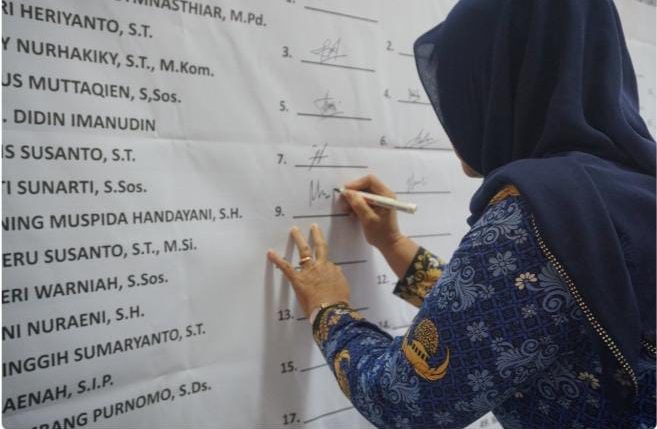 MNASTHIAR, M.Pd.
RI HERIYANTO, S.T.
Y NURHAKIKY, S.T., M.Kom.
US MUTTAQIEN, S,Sos.
. DIDIN IMANUDIN
IS SUSANTO, S.T.
TI SUNARTI, S.Sos.
NING MUSPIDA HANDAYANI, S.H.
ERU SUSANTO, S.T., M.Si.
ERI WARNIAH, S.Sos.
NI NURAENI, S.H.
INGGIH SUMARYANTO, S.T.
AENAH, S.I.P.
BANG PURNOMO, S.Ds.
3.
2.
5.
4.
6.
7.
9.
12.
13.
15.
17.